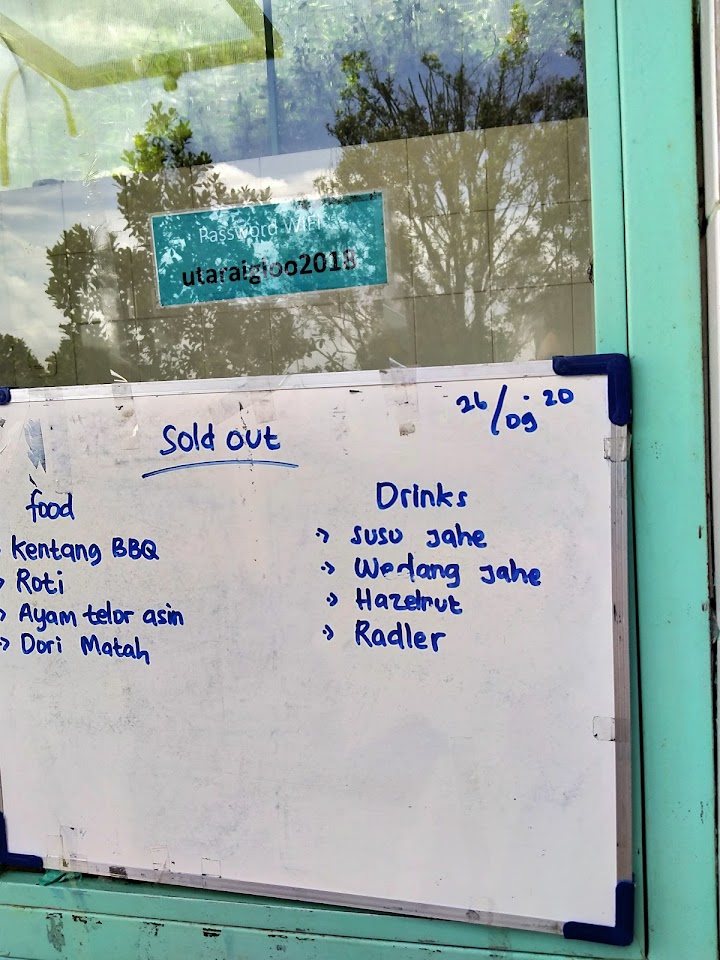 Password WiFi
utaraigloo2018
26/09·20
Sold out
food
Kentang BBQ
Roti
Ayam telor asin
Dori Matah
Drinks
susu jahe
Wedang jahe
Hazelnut
Radler